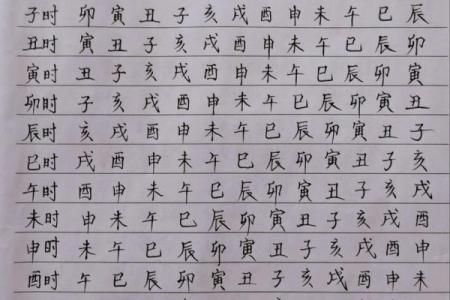 子时 卯 寅 丑 子 亥 戌 酉 申 未 午 巳 辰
丑时 寅 丑 子 亥 戌 酉 申 未 午 巳 辰 卯
寅时 丑 子 亥 戌 酉 申 未 午 巳 辰 卯 寅
卯时 子 亥 戌 酉 申 未 午 巳 辰 卯 寅 丑
辰时 亥 戌 酉 申 未 午 巳 辰 卯 寅 丑 子
巳时 戌 酉 申 未 午 巳 辰 卯 寅 丑 子 亥
午时 酉 申 未 午 巳 辰 卯 寅 丑 子 亥 戌
未时 申 未 午 巳 辰 卯 寅 丑 子 亥 戌 酉
申时 未 午 巳 辰 卯 寅 丑 子 亥 戌 酉 申
酉时 午 巳 辰 卯 寅 丑 子 亥 戌 酉 申 未